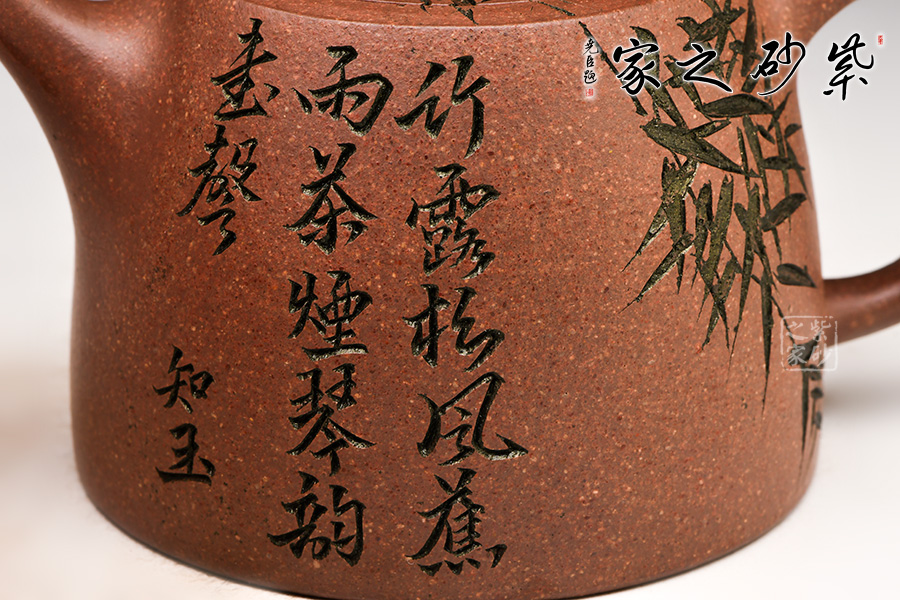 紫砂之家
竹露松風蕉
雨茶煙琴韵
書聲
知玉
紫砂
之家